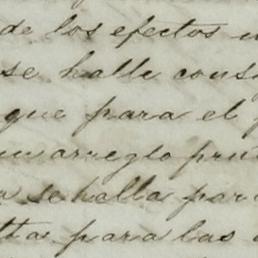 de los efectos
se halle cons
que para el
un arreglo pru
se halla par
para las